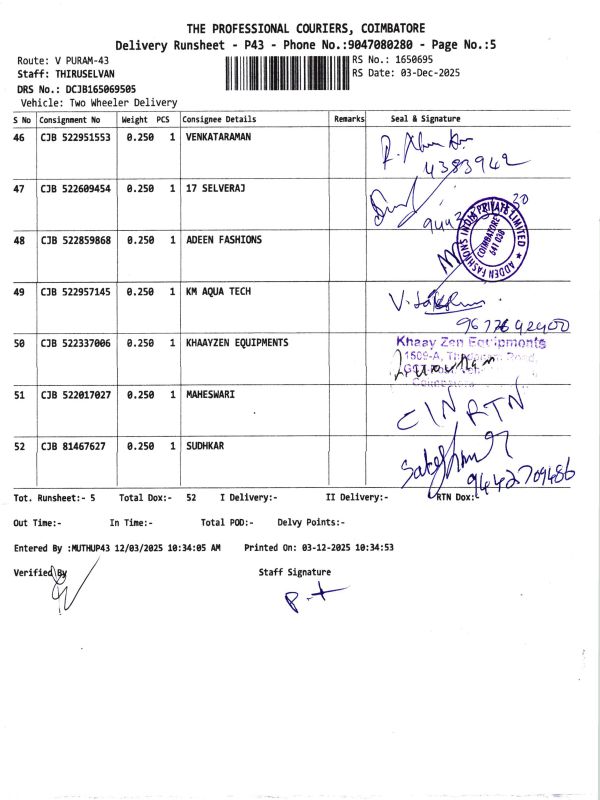 THE PROFESSIONAL COURIERS, COIMBATORE
Delivery Runsheet - P43 - Phone No.:9047080280 - Page No.:5
Route: V PURAM-43 RS No.: 1650695
Staff: THIRUSELVAN RS Date: 03-Dec-2025
DRS No.: DCJB165069505
Vehicle: Two Wheeler Delivery
S No Consignment No Weight PCS Consignee Details Remarks Seal & Signature
46 CJB 522951553 0.250 1 VENKATARAMAN
4383942
47 CJB 522609454 0.250 1 17 SELVERAJ
48 CJB 522859868 0.250 1 ADEEN FASHIONS
ADDEN FASHIONS INDIA PRIVATE LIMITED
COIMBATORE
641 038
49 CJB 522957145 0.250 1 KM AQUA TECH
9677692400
50 CJB 522337006 0.250 1 KHAAYZEN EQUIPMENTS Khaay Zen Equipments
1509-A,
51 CJB 522017027 0.250 1 MAHESWARI
RTN
52 CJB 81467627 0.250 1 SUDHKAR
9442709486
Tot. Runsheet:- 5 Total Dox:- 52 I Delivery:- II Delivery:- RTN Dox:-
Out Time:- In Time:- Total POD:- Delvy Points:-
Entered By :MUTHUP43 12/03/2025 10:34:05 AM Printed On: 03-12-2025 10:34:53
Verified By Staff Signature